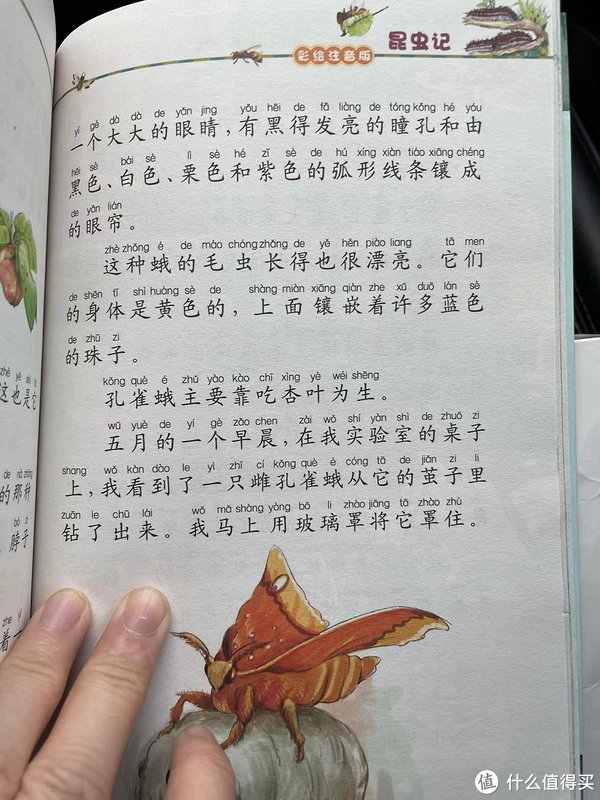 彩绘注音版 昆虫记
yī gè dà dà de yǎn jing yǒu hēi de fā liàng de tóng kǒng hé yóu
一个大大的眼睛，有黑得发亮的瞳孔和由
hēi sè bái sè lì sè hé zǐ sè de hú xíng xiàn tiáo xiāng chéng
黑色、白色、栗色和紫色的弧形线条镶成
de yǎn lián
的眼帘。
zhè zhǒng é de máo chóng zhǎng de yě hěn piào liang tā men
这种蛾的毛虫长得也很漂亮。它们
de shēn tǐ shì huáng sè de shàng miàn xiāng qiàn zhe xǔ duō lán sè
的身体是黄色的，上面镶嵌着许多蓝色
de zhū zi
的珠子。
kǒng què é zhǔ yào kào chī xìng yè wéi shēng
孔雀蛾主要靠吃杏叶为生。
wǔ yuè de yí gè zǎo chen zài wǒ shí yàn shì de zhuō zi
五月的一个早晨，在我实验室的桌子
shang wǒ kàn dào le yì zhī cí kǒng què é cóng tā de jiǎn zi li
上，我看到了一只雌孔雀蛾从它的茧子里
zuān le chū lái wǒ mǎ shàng yòng bō li zhào jiāng tā zhào zhù
钻了出来。我马上用玻璃罩将它罩住。
这也是它
的那种
脖子
着一
值 什么值得买